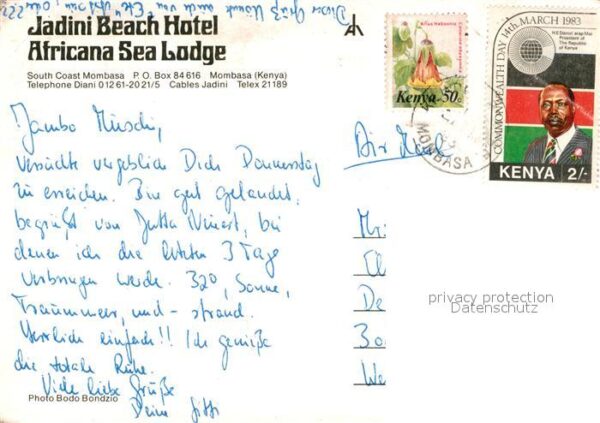 Dieser Gruß kommt auch von "Ete"
Jadini Beach Hotel
Africana Sea Lodge
South Coast Mombasa P. O. Box 84616 Mombasa (Kenya)
Telephone Diani 01261-2021/5 Cables Jadini Telex 21189
Kenya 50c
COMMONWEALTH DAY 14th MARCH 1983
H.E. Daniel arap Moi
President of
The Republic
of Kenya
KENYA 2/-
MOMBASA
Air Mail
Jambo
versuchte vergeblich Dich Donnerstag
zu erreichen. Bin gut gelandet,
begrüßt von Jutta, bei
denen ich die letzten 3 Tage
verbringen werde. 32°, Sonne,
Traummeer, und - strand.
Herrlich einfach!! Ich genieße
die totale Ruhe.
Viele liebe Grüße
Deine
Photo Bodo Bondzio
privacy protection
Datenschutz